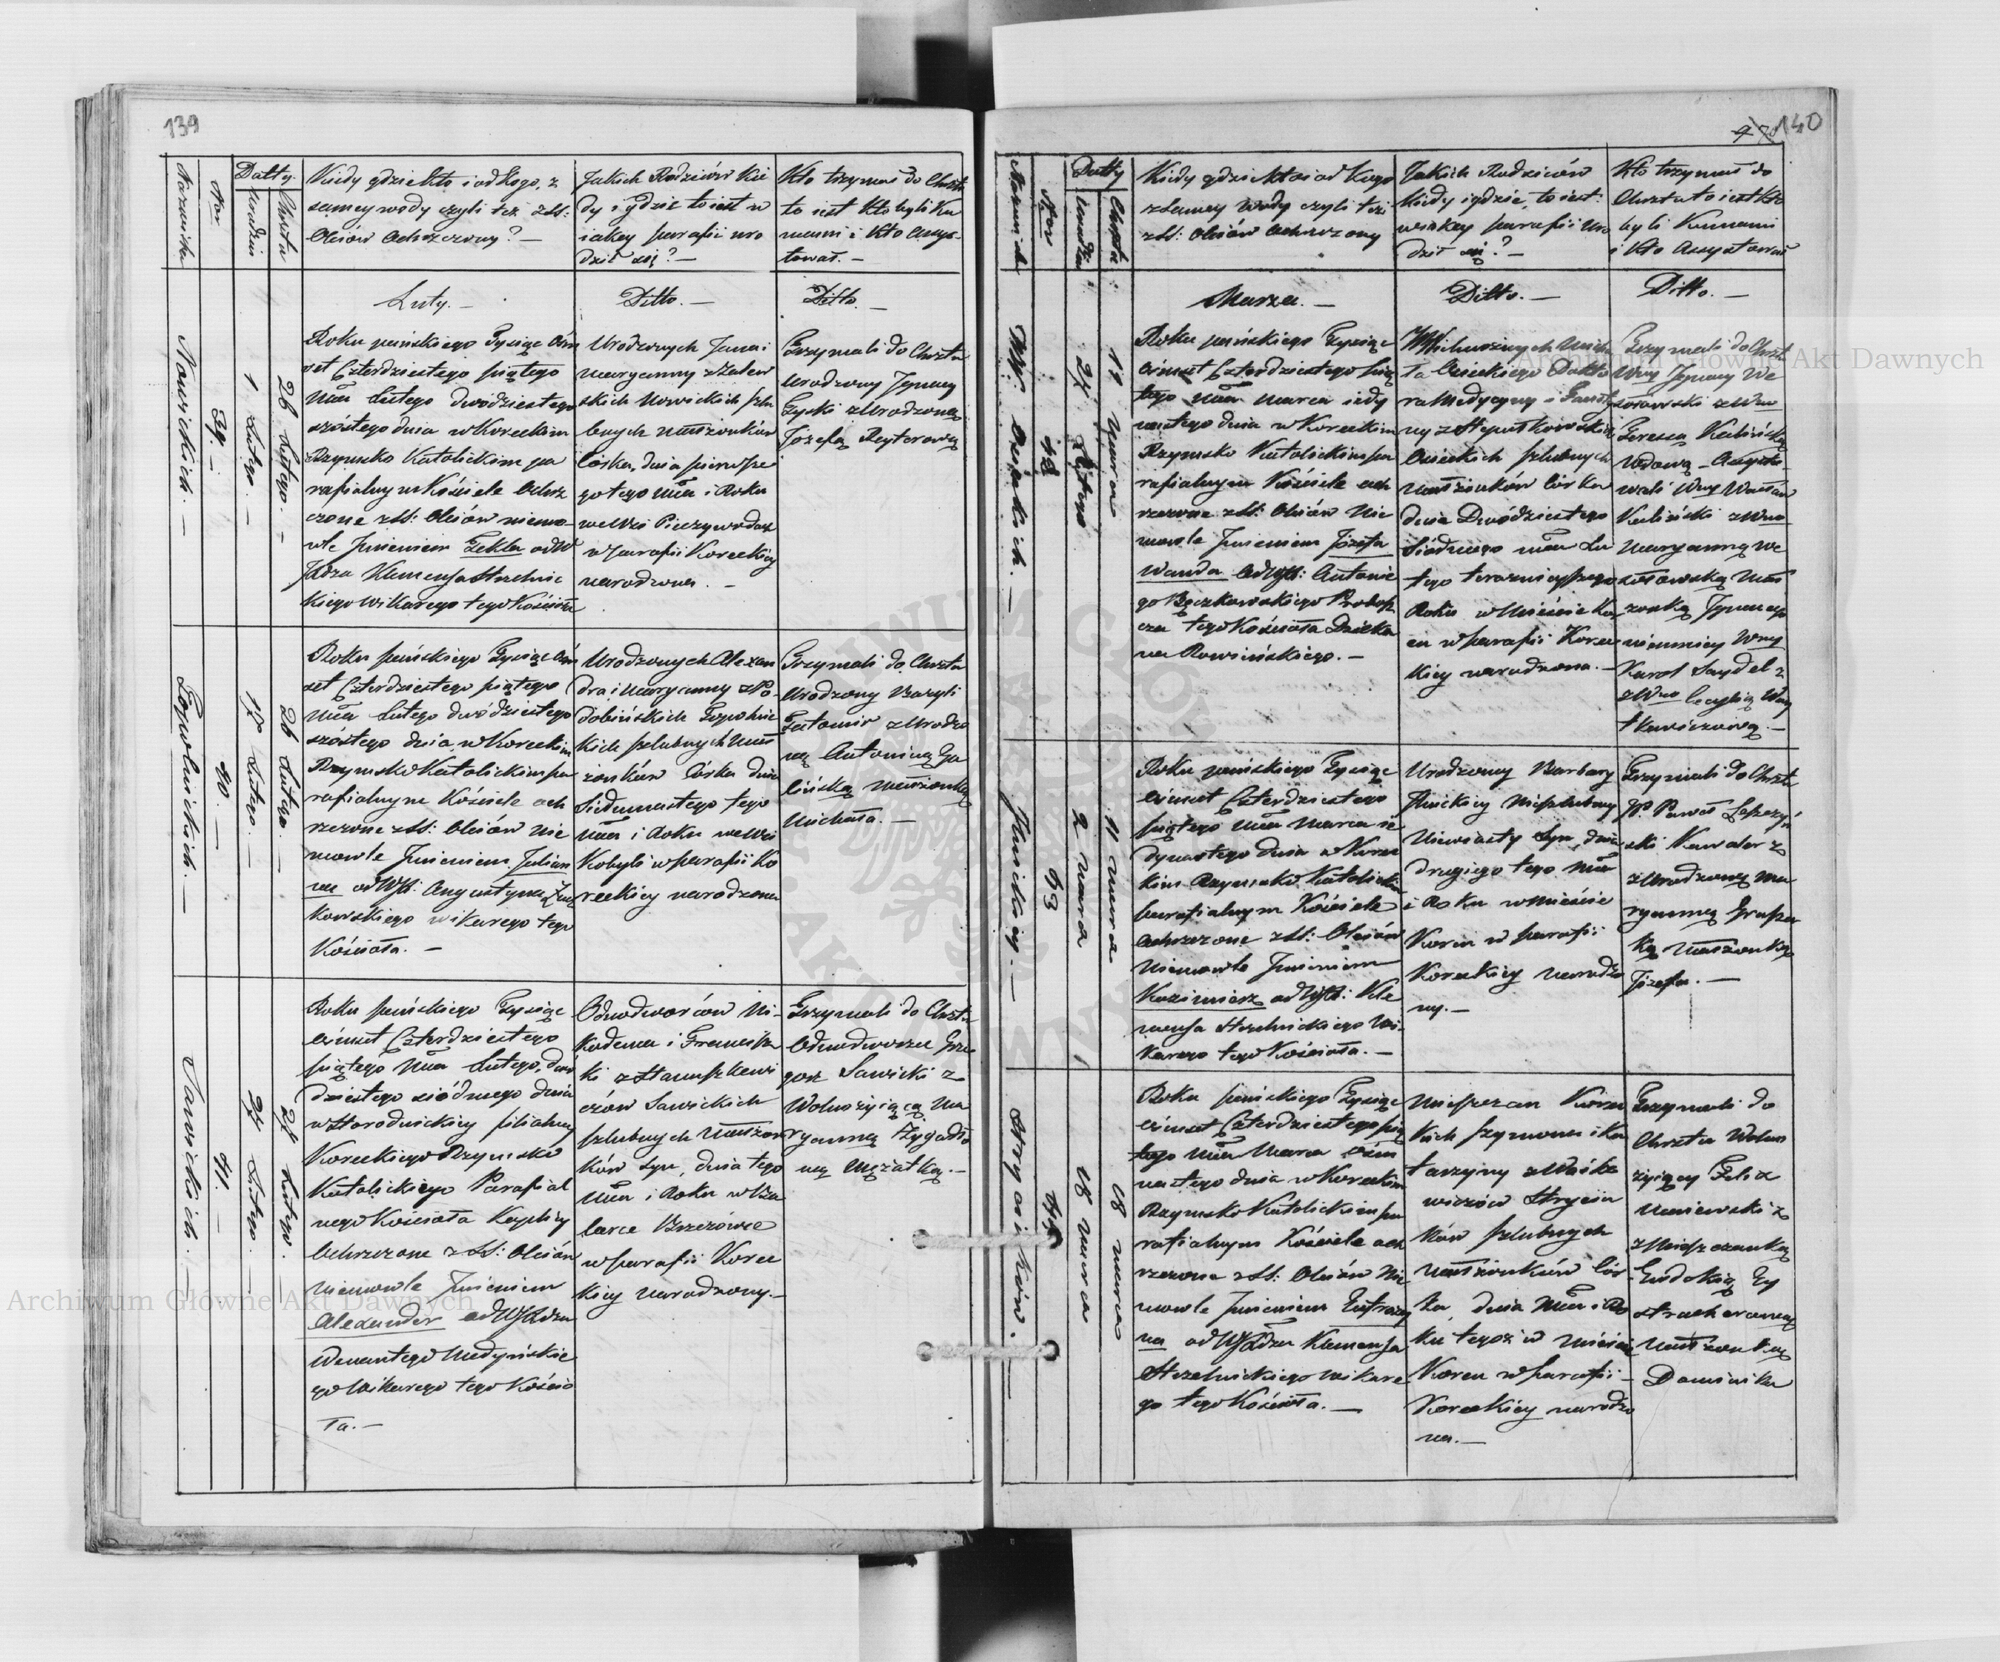 139
Nazwiska
Nor
Datty
Urodzin
Chrztu
Kiedy gdzie kto i od kogo, z
samey wody czyli też z SS:
Oleiów Ochrzczony? —
Jakich Rodziców Kie
dy i gdzie to iest w
iakey parafii uro
dził się? —
Kto trzymał do Chrztu
to iest kto byli Ku
mami i kto assys-
tował. —
Luty. —
Ditto. —
Ditto. —
Nowickich. —
1 Lutego. —
26 Lutego. —
Roku pańskiego Tysiąc Ośm
set Czterdziestego piątego
Mca Lutego dwódziestego
szóstego dnia w Koreckim
Rzymsko Katolickim pa
rafialnym Kościele Ochrz
czone z SS: Oleiów niemo-
wle Imieniem Tekla od W
Jxdza Klemensa Strzelnic
kiego Wikarego tego Kościoła
Urodzonych Jana i
Maryanny z Zalew
skich Nowickich szlu
bnych Małżonków
Córka, dnia pierwsze
go tego Mca i Roku
we Wsi
w parafii Koreckiey
narodzona. —
Trzymali do Chrztu
Urodzony Ignacy
z Urodzoną
Józefą Reyterową
40. —
17 Lutego. —
26 Lutego. —
Roku pańskiego Tysiąc Ośm
set Czterdziestego piątego
Mca Lutego dwódziestego
szóstego dnia w Koreckim
Rzymsko Katolickim pa
rafialnym Kościele och
rzczone z SS: Oleiów Nie
mowle Imieniem Julian
na od WJX: Augustyna
kowskiego wikarego tego
Kościoła. —
Urodzonych Alexan
dra i Maryanny z Po-
dobińskich
kich szlubnych Mał
żonków Córka dnia
Siedmnastego tego
Mca i Roku we Wsi
Kobyli w parafii Ko
reckiey narodzona
Trzymali do Chrztu
Urodzony Bazyli
z Urodzo
ną Antoniną
lińską Małżonką
Michała. —
Sawickich. —
41. —
27 Lutego. —
27 Lutego. —
Roku pańskiego Tysiąc
ośmset Czterdziestego
piątego Mca Lutego, dwu
dziestego siódmego dnia
w Storodnickiey filialney
Koreckiego Rzymsko
Katolickiego Parafial
nego Kościoła Kaplicy
Ochrzczone z SS: Oleiów
niemowle Imieniem
Alexander od WJXdza
Wenantego Medyńskie
go Wikarego tego Kościo
ła. —
Odnodworców Ni-
kodema i Franciszki
z Staniszkewi
czów Sawickich
szlubnych Małżon
ków Syn, dnia tego
Mca i Roku w
Brzezówce
w parafii Korec
kiey narodzony. —
Trzymali do Chrztu
Odnodworzec Grze
gorz Sawicki z
Wolnożyiącą Ma
ryanną Zygadło
wą Mężatką. —
140
Nazwiska
Nor
Datty
Urodzin
Chrztu
Kiedy gdzie kto i od kogo
z samey Wody czyli też
z SS: Oleiów Ochrzczony
Jakich Rodziców
Kiedy i gdzie, to iest:
w iakey parafii Uro
dził się? —
Kto trzymał do
Chrztu to iest kto
byli Kumami
i kto Assystował
Marzec. —
Ditto. —
Ditto. —
WW. Osieckich. —
42
27 Lutego
11 Marca
Roku pańskiego Tysiąc
ośmset Czterdziestego pią
tego Mca Marca iedy
nastego dnia w Koreckim
Rzymsko Katolickim pa
rafialnym Kościele och
rzczone z SS: Oleiów Nie
mowle Imieniem Józefa
Wanda od WJX: Antonie
go Bączkowskiego Probosz
cza tego Kościoła Dzieka
na Rowińskiego. —
WWielmożnych Micha
ła Osieckiego Dokto
ra Medycyny i
ny z Stępułkowskich
Osieckich szlubnych
Małżonków Córka
dnia Dwódziestego
Siódmego Mca Lu
tego terazniejszego
Roku w Mieście Ko
rcu w parafii Korec
kiey narodzona. —
Trzymali do Chrztu
Wny Ignacy We
sołowski z Wną
Teressą Kulińską
Wdową — Assysto
wali Wny Wacław
Kuliński z Wną
Maryanną We
sołowską Mał
żonką Ignacego
niemniey Wny
Karol Saydel z
z Wną Cecylią Woy
tkiewiczową. —
Ilnickiey. —
63
2 Marca
11 Marca
Roku pańskiego Tysiąc
ośmset Czterdziestego
piątego Mca Marca ie
dynastego dnia w Korec
kim Rzymsko Katolickim
parafialnym Kościele
Ochrzczone z SS: Oleiów
Niemowle Imieniem
Kazimierz od WJX: Kle
mensa Strzelnickiego Wi-
karego tego Kościoła. —
Urodzoney Barbary
Ilnickiey Nieszlubney
Niewiasty Syn, dnia
drugiego tego Mca
i Roku w Mieście
Korcu w parafii
Koreckiey narodzo
ny. —
Trzymali do Chrztu
JP. Paweł
ski Kawaler z
z Urodzoną Ma
ryanną
ką Małżonką
Józefa. —
18 Marca
18 Marca
Roku pańskiego Tysiąc
ośmset Czterdziestego pią
tego Mca Marca ośm
nastego dnia w Koreckim
Rzymsko Katolickim pa
rafialnym Kościele och
rzczone z SS: Oleiów Nie
mowle Imieniem Eufrozy
na od WJXdza Klemensa
Strzelnickiego Wikare
go tego Kościoła. —
Mieszczan Korec
kich Szymona i Ka
tarzyny z Waśke
wiczów
ków szlubnych
Małżonków Cór
ka, dnia Mca i Ro
ku tegoż w Mieście
Korcu w parafii —
Koreckiey narodzo
na. —
Trzymali do
Chrztu Wolno
żyiący Felix
Maniewski z
z Mieszczanką
Eudokią
Małżonką
Dominika
Archiwum Główne Akt Dawnych
Archiwum Główne Akt Dawnych